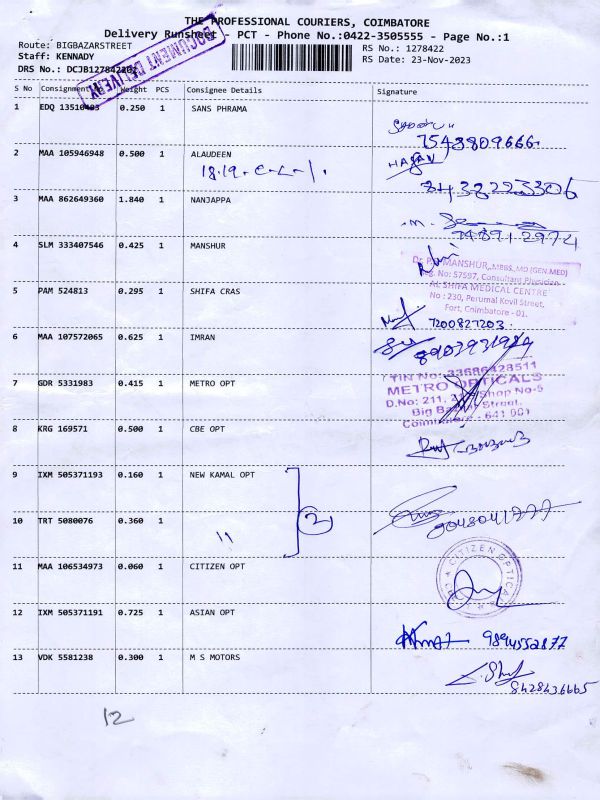 THE PROFESSIONAL COURIERS, COIMBATORE
Delivery Runsheet - PCT - Phone No.:0422-3505555 - Page No.:1
Route: BIGBAZARSTREET
RS No.: 1278422
Staff: KENNADY
RS Date: 23-Nov-2023
DOCUMENT DELIVERY
S No Consignment Weight PCS Consignee Details Signature
1 EDQ 0.250 1 SANS PHRAMA
7548809666
2 MAA 105946948 0.500 1 ALAUDEEN HASAN
8438223306
3 MAA 862649360 1.840 1 NANJAPPA
4 SLM 333407546 0.425 1 MANSHUR
MANSHUR, MBBS, MD (GEN.MED)
No: 57597, Consultant Physician
AL SHIFA MEDICAL CENTRE
No : 230, Perumal Kovil Street,
Fort, Coimbatore - 01.
5 PAM 524813 0.295 1 SHIFA CRAS
7200827203
6 MAA 107572065 0.625 1 IMRAN
7 GDR 5331983 0.415 1 METRO OPT
TIN No: 33686428511
METRO OPTICALS
D.No: 211, Shop No-5
Big Street,
641 001
8 KRG 169571 0.500 1 CBE OPT
9 IXM 505371193 0.160 1 NEW KAMAL OPT
2
10 TRT 5080076 0.360 1 "
11 MAA 106534973 0.060 1 CITIZEN OPT
CITIZEN OPTICAL
12 IXM 505371191 0.725 1 ASIAN OPT
9894552877
13 VDK 5581238 0.300 1 M S MOTORS
8428436665
12